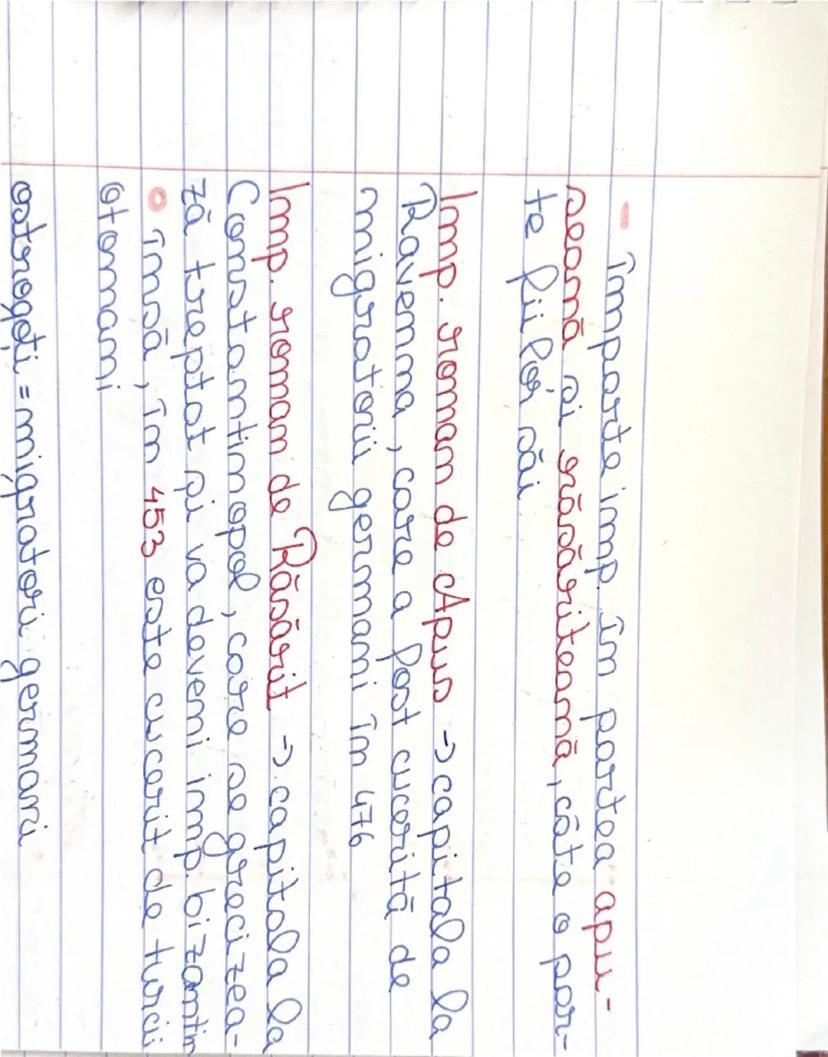 - Împarte imp. în partea apu-
seană și răsăriteană, câte o par-
te fiilor săi
Imp. roman de Apus -> capitala la
Ravenna, care a fost cucerită de
migratorii germani în 476
Imp. roman de Răsărit -> capitala la
Constantinopol, care se grecizea-
ză treptat și va deveni imp. bizantin
o însă, în 453 este cucerit de turcii
otomani
ostrogoți = migratori germani